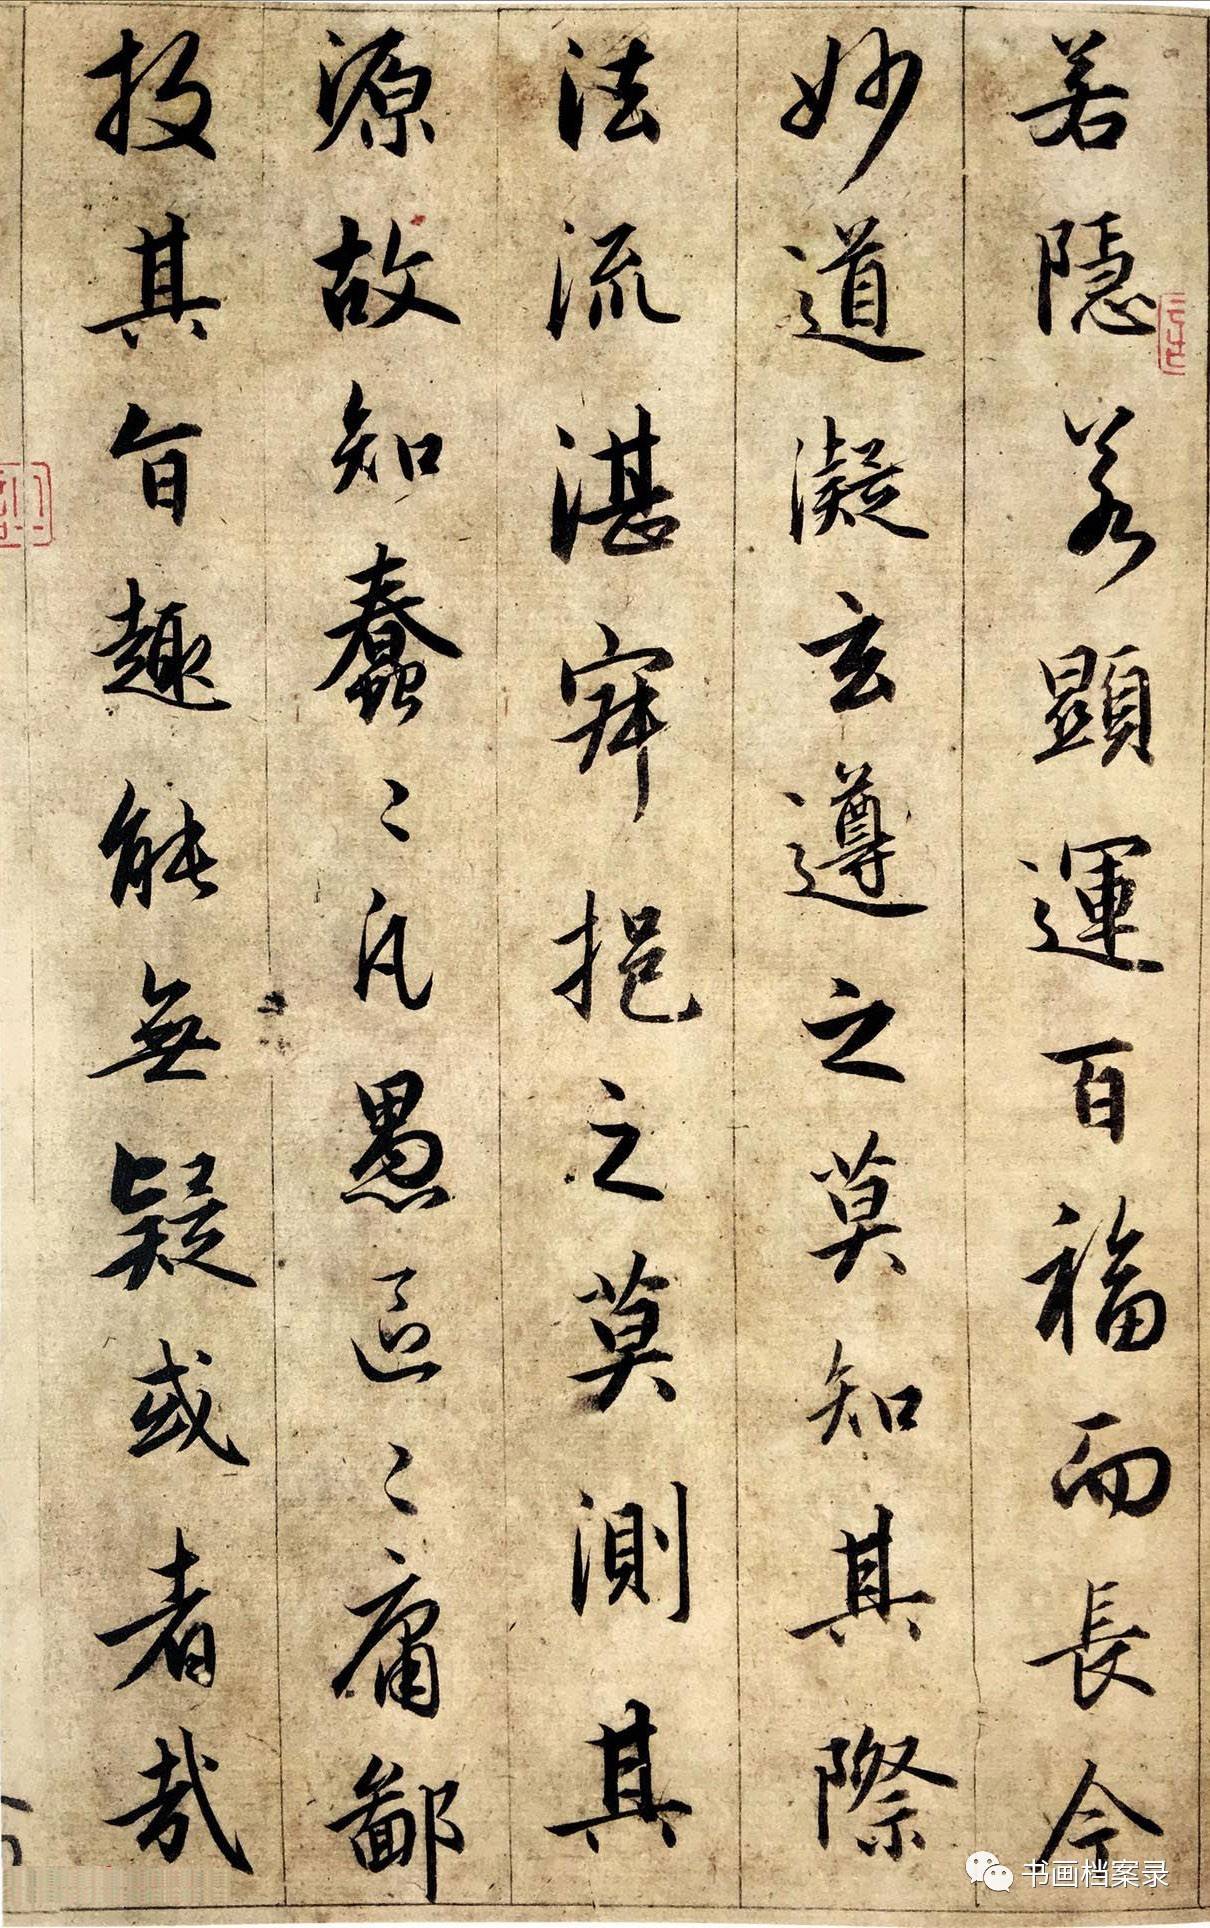 若隱若顯運百福而長今
妙道凝玄遵之莫知其際
法流湛寂挹之莫測其
源故知蠢〻凡愚區〻庸鄙
投其旨趣能無疑或者哉
书画档案录